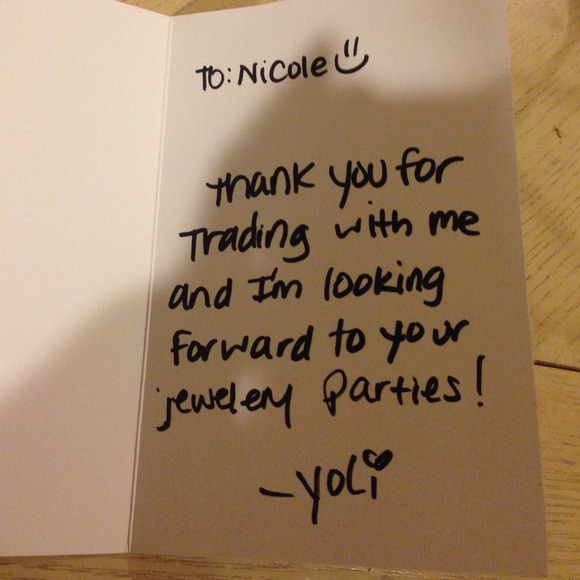 To: Nicole
Thank you for
Trading with me
and I'm looking
forward to your
jewelery Parties!
- Yoli